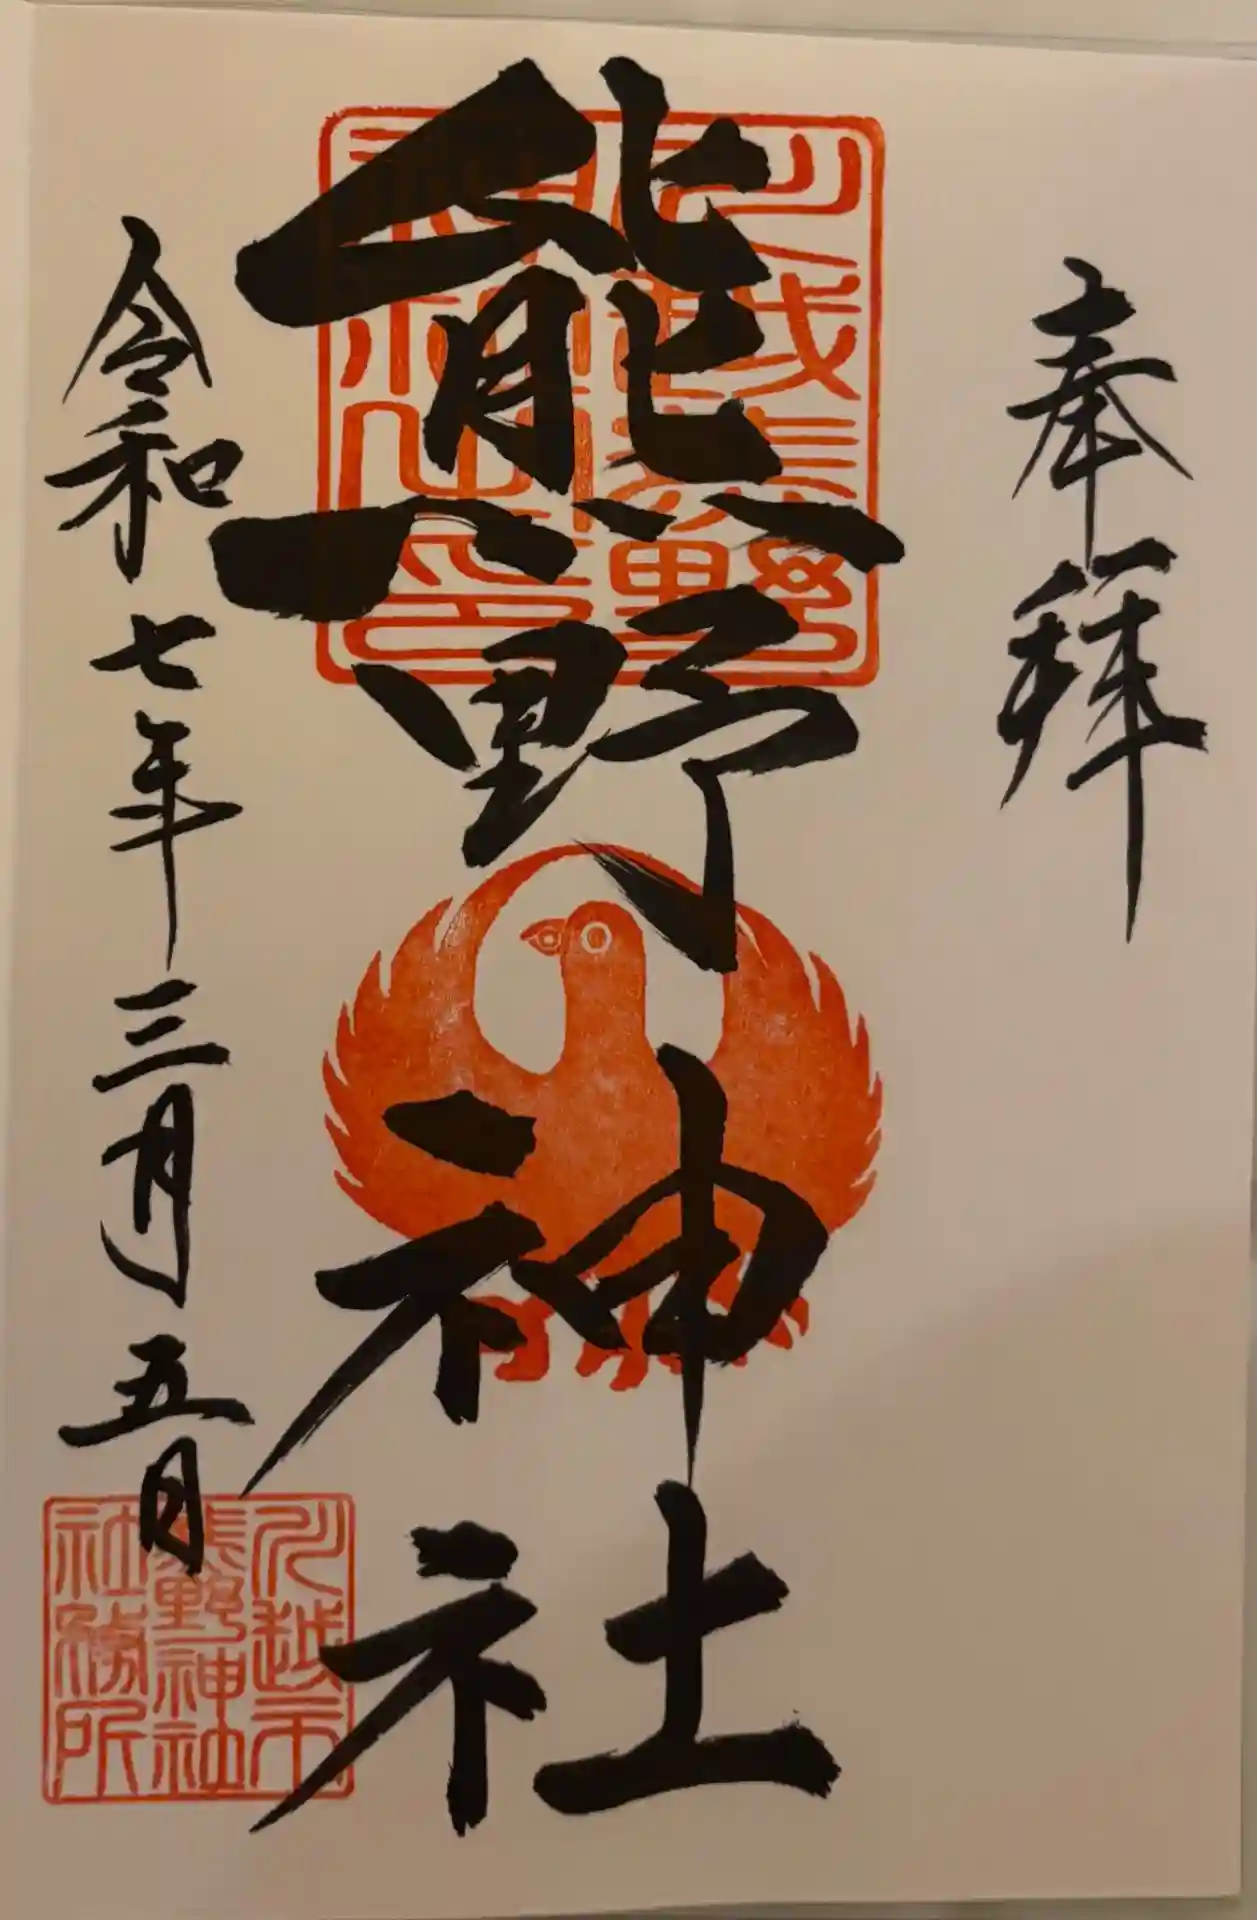 奉拝
熊野神社
川越熊野
神社之印
令和七年三月五日
川越市
熊野神社
社務所